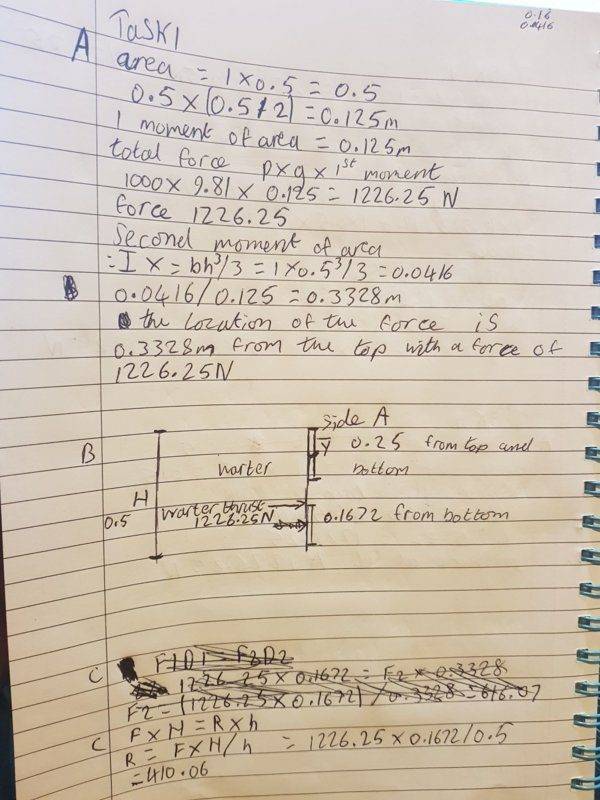 0.16
0.0416
Task 1
A area = 1 x 0.5 = 0.5
0.5 x (0.5/2) = 0.125m
1 moment of area = 0.125m
total force pxgx1st moment
1000 x 9.81 x 0.125 = 1226.25 N
force 1226.25
Second moment of area
= I x = bh³/3 = 1 x 0.5³/3 = 0.0416
0.0416/0.125 = 0.3328m
the location of the force is
0.3328m from the top with a force of
1226.25N
side A
B ȳ 0.25 from top and
warter bottom
H
warter thrust
0.5 1226.25N 0.1672 from bottom
F1D1 = F2D2
C 1226.25 x 0.1672 = F2 x 0.3328
F2 = (1226.25 x 0.1672) / 0.3328 = 616.07
F x H = R x h
C R = F x H/h = 1226.25 x 0.1672/0.5
= 410.06